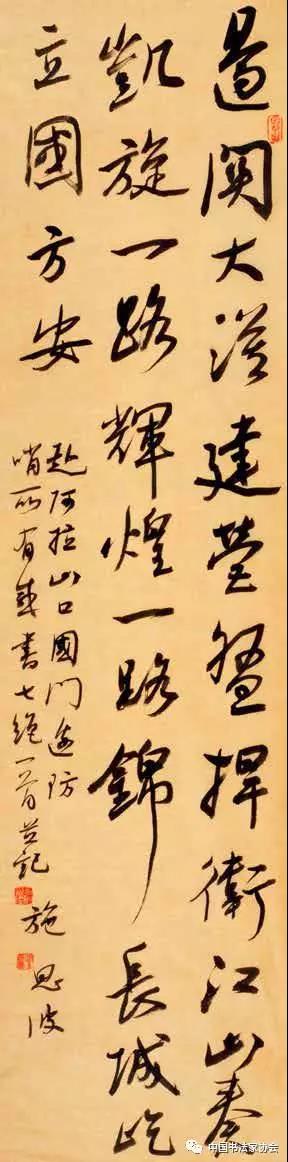 邊關大漠建營盤捍衛江山奏
凱旋一路輝煌一路錦長城屹
立國方安
赴阿拉山口國門邊防
哨所有感書七絕一首並記
施恩波
中国书法家协会